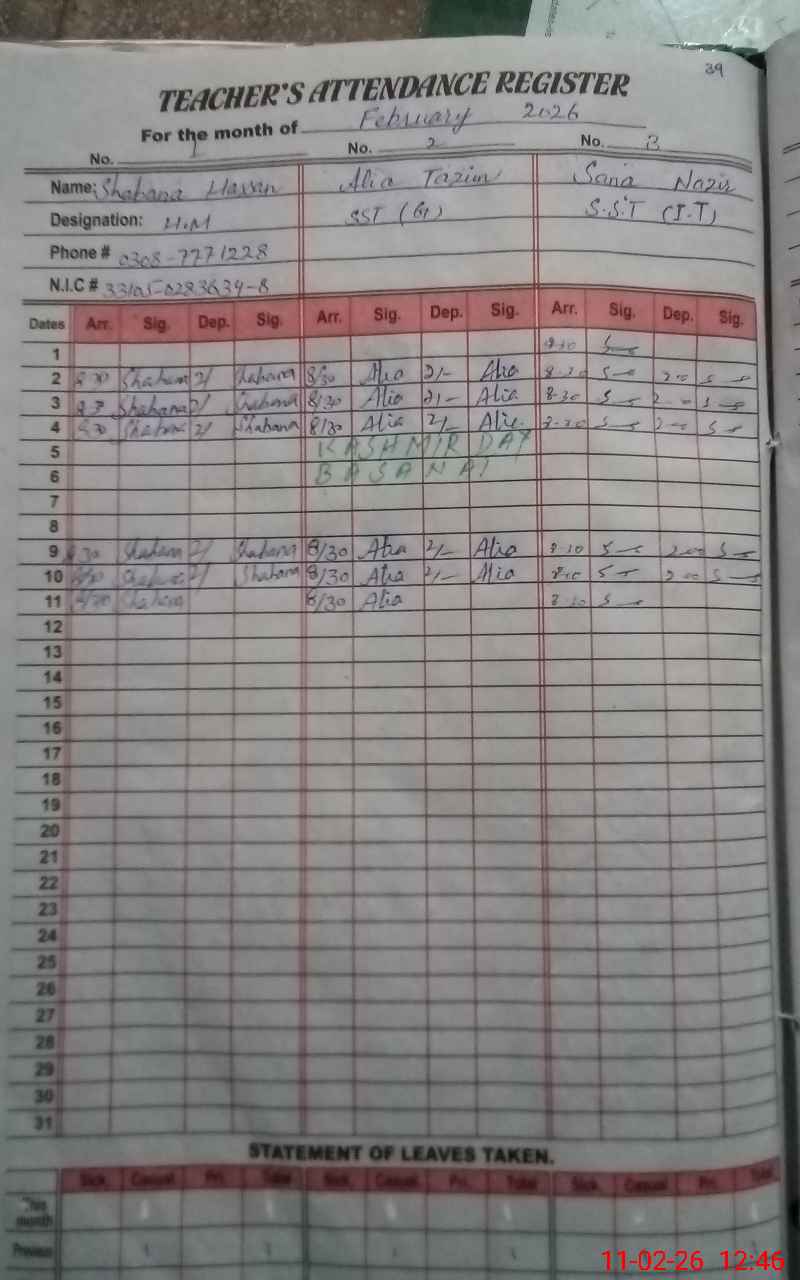 39
TEACHER'S ATTENDANCE REGISTER
For the month of February 2026
No. 1 No. 2 No. 3
Name: Shahana Hassan Alia Tazim Sana Nazir
Designation: H.M SST (G) S.S.T (I.T)
Phone # 0308-7771228
N.I.C #
Dates Arr. Sig. Dep. Sig. Arr. Sig. Dep. Sig. Arr. Sig. Dep. Sig.
1 8-30
2 8/30 Shahana 2/ Shahana 8/30 Alia 2/- Alia 8-30 2-00
3 Shahana 2/ Shahana 8/30 Alia 2/- Alia 8-30
4 8/30 Shahana 2/ Shahana 8/30 Alia 2/- Alia 8-30 2-00
5 KASHMIR DAY
6 BASANAT
7
8
9 8/30 Shahana 2/ Shahana 8/30 Alia 2/- Alia 8-30 2-00
10 8/30 Shahana 2/ Shahana 8/30 Alia 2/- Alia 2-00
11 8/30 Shahana 8/30 Alia 8-30
12
13
14
15
16
17
18
19
20
21
22
23
24
25
26
27
28
29
30
31
STATEMENT OF LEAVES TAKEN.
Sick. Casual Pri. Total Sick. Casual Pri. Total Sick. Casual Pri. Total
This month
Previous
11-02-26 12:46